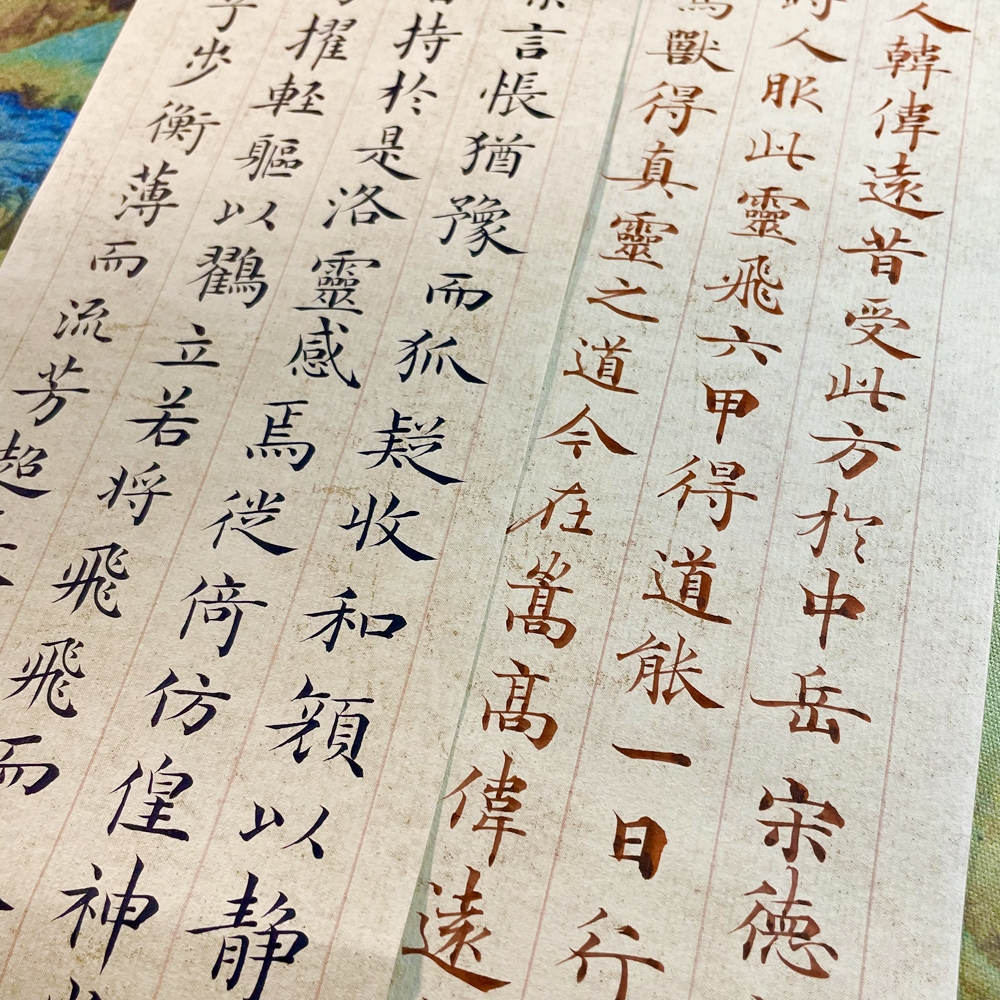 人韓偉遠昔受此方於中岳宋德
時人服此靈飛六甲得道能一日行
鳥獸得真靈之道今在嵩高偉遠
言悵猶豫而狐疑收和顏以静
持於是洛靈感焉徙倚仿偟神
擢輕軀以鸖立若将飛飛而
步衡薄而流芳超